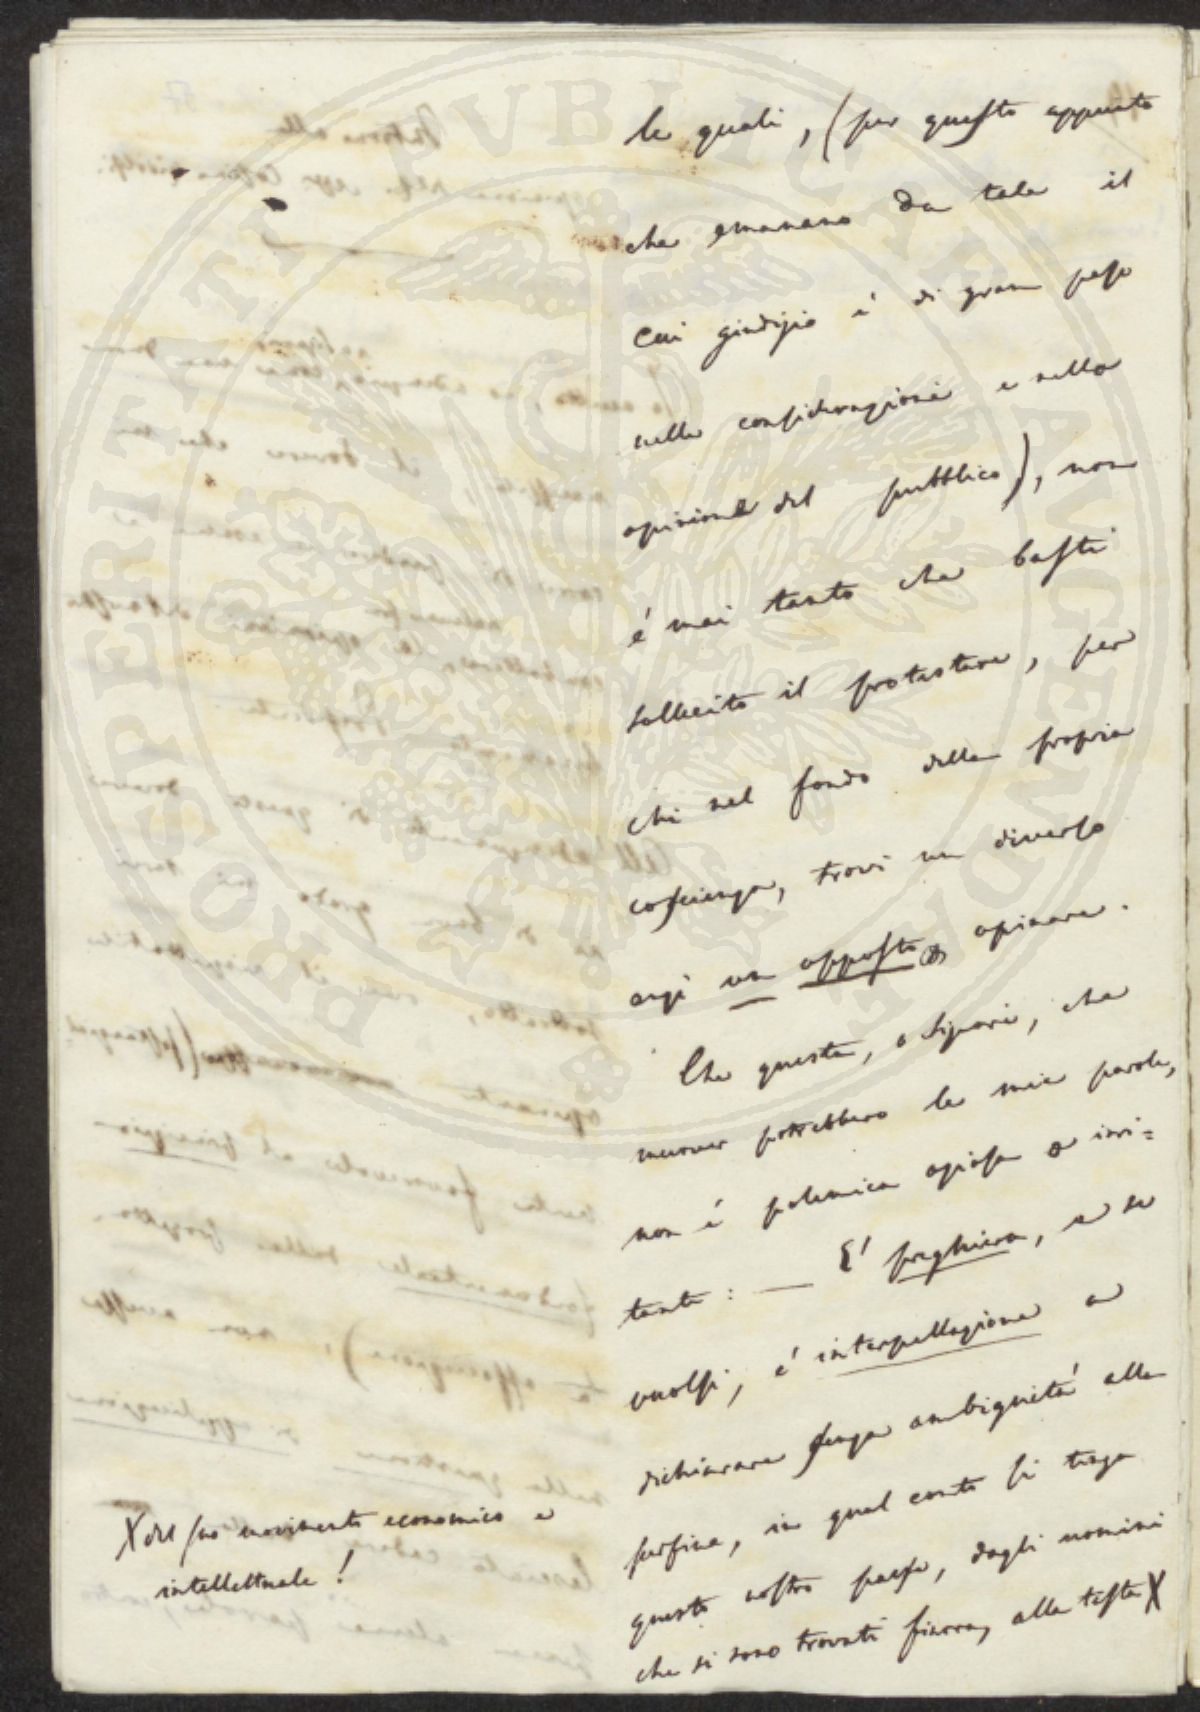 le quali, (per questo appunto
che emanano da tale il
cui giudizio è di gran peso
nella considerazione e nella
opinione del pubblico), non
è mai tanto che basti
sollecito il protestare, per
chi nel fondo della propria
coscienza, trovi un diverso
anzi un opposto opinare.
Che queste, o Signori, che
muover potrebbero le mie parole,
non è polemica oziosa o irri=
tante: — È preghiera, e se
vuolsi, è interpellazione a
dichiarare senza ambiguità alla
perfine, in qual conto si tenga
questo nostro paese, dagli uomini
che si sono trovati finora, alla testa X
X del suo movimento economico e
intellettuale!
PROSPERITATI PVBLICAE AVGENDAE